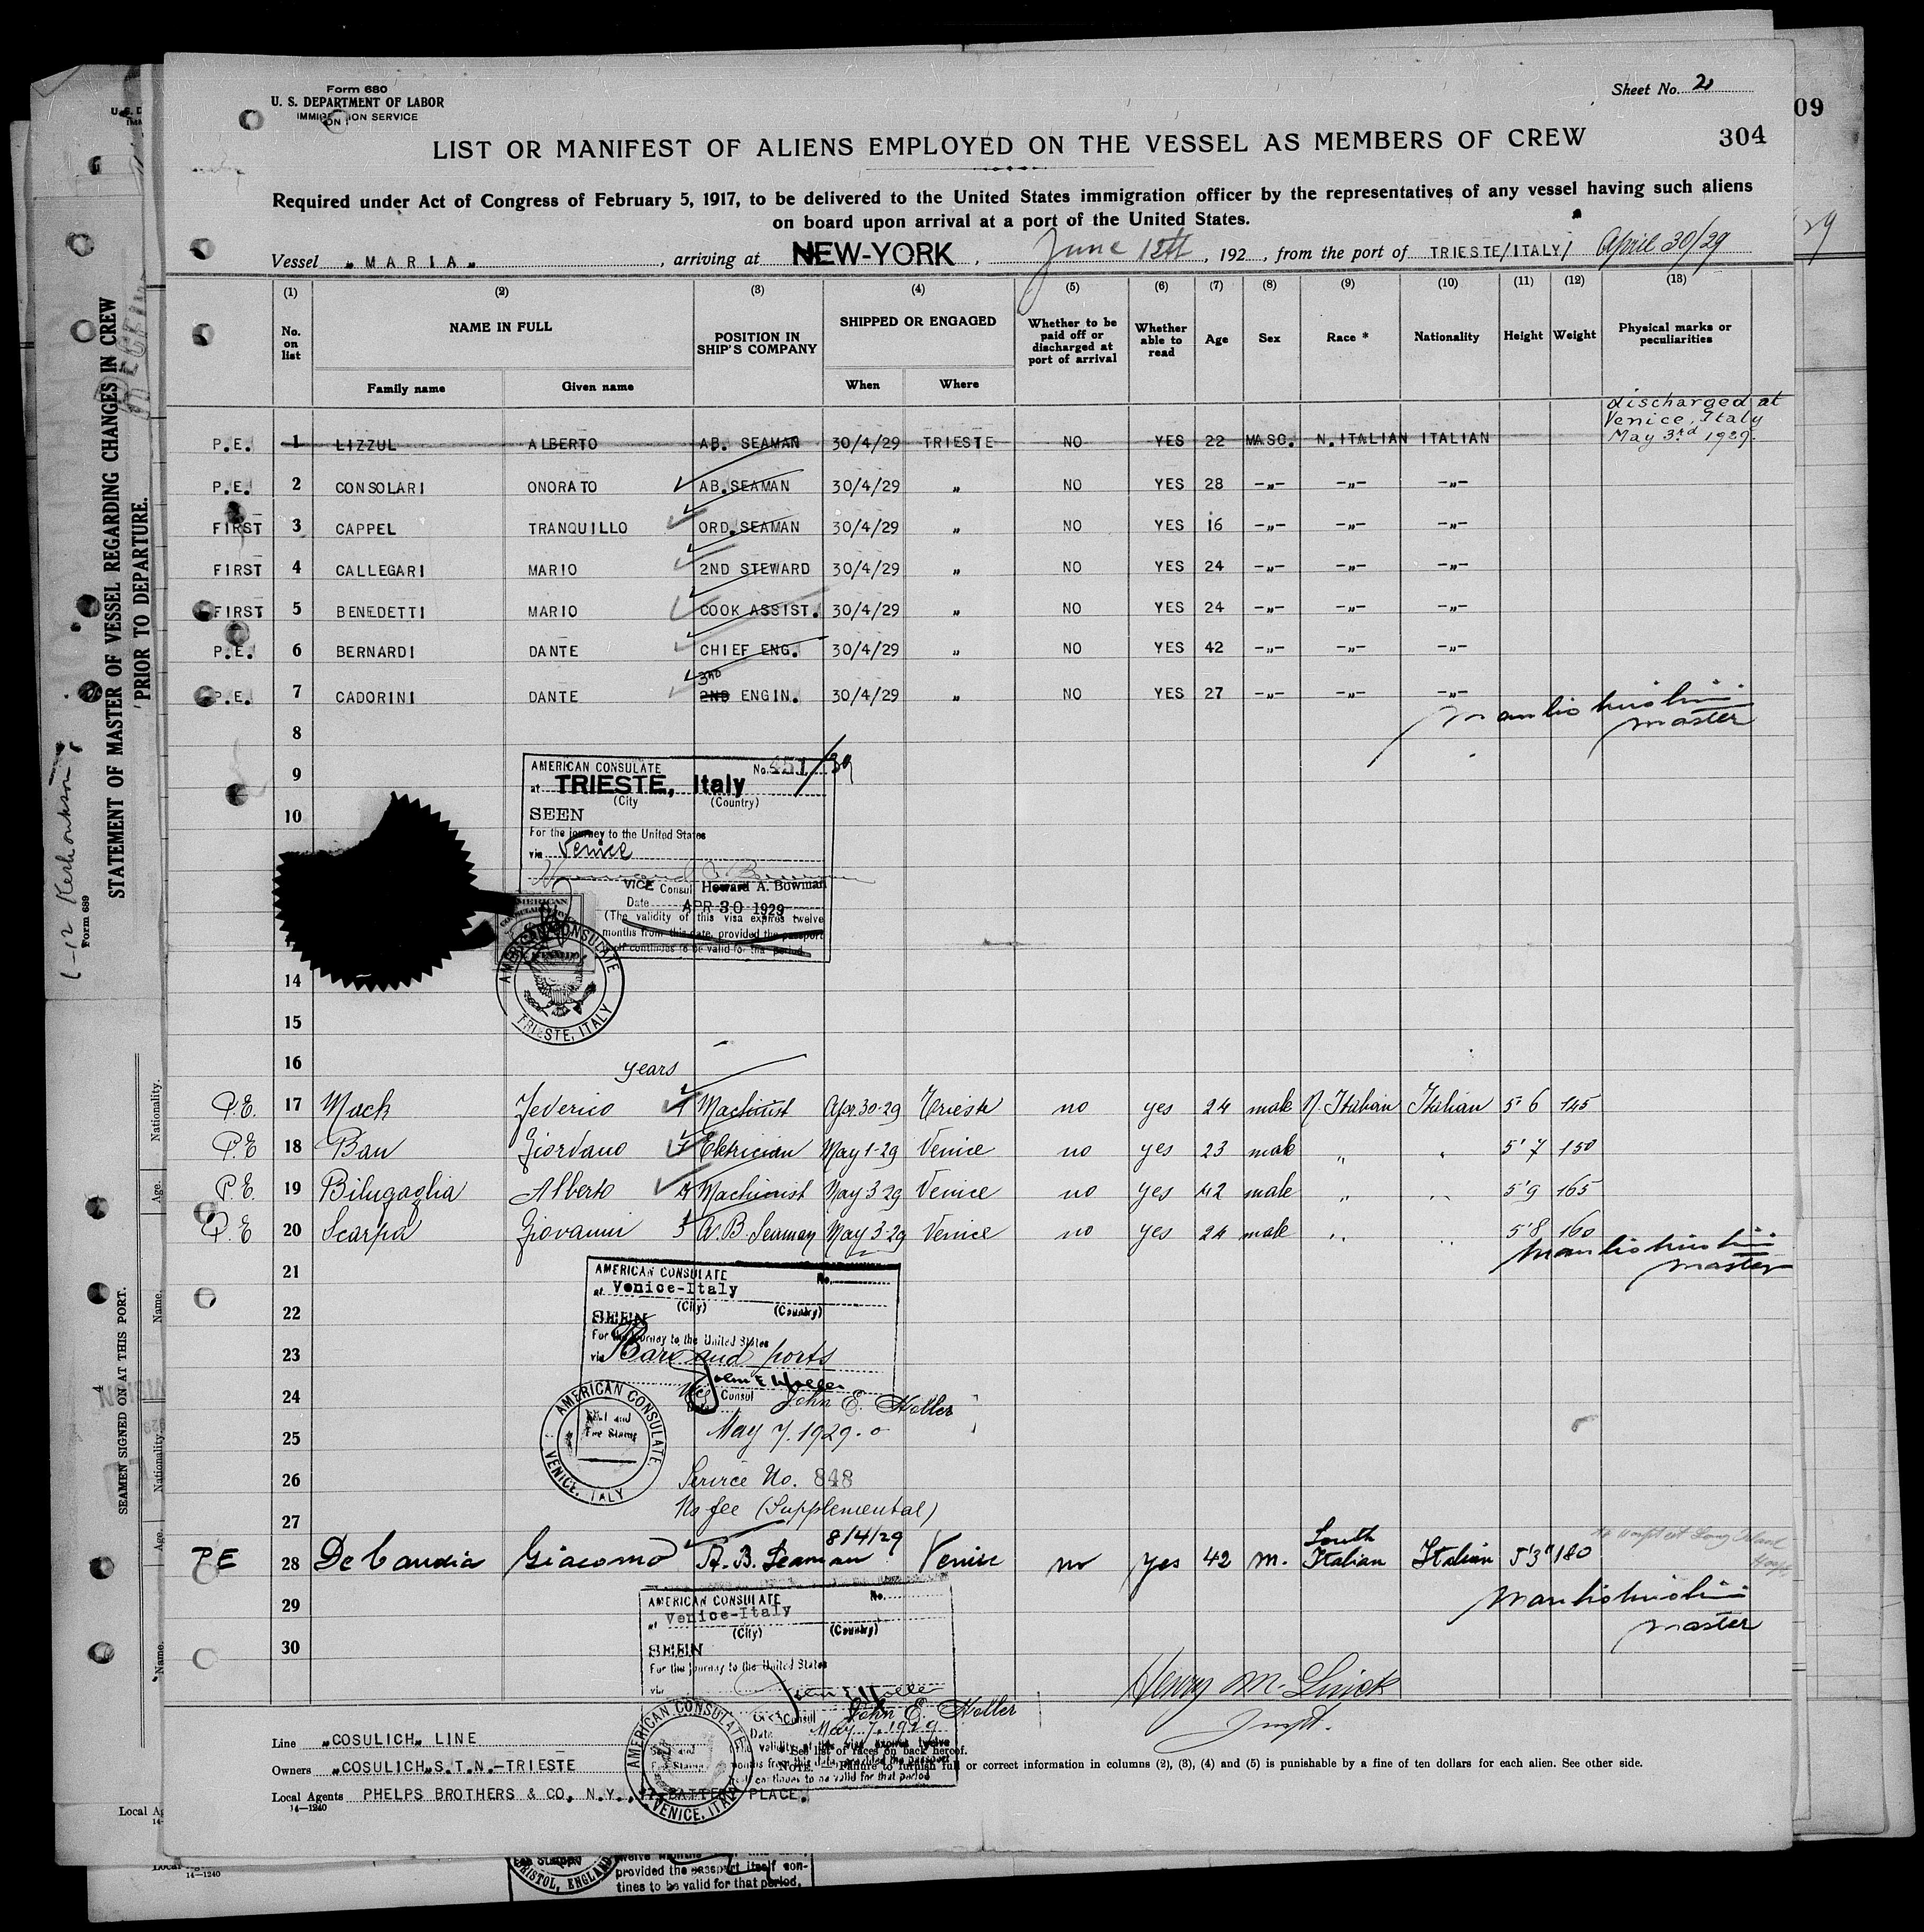 Form 680
U. S. DEPARTMENT OF LABOR
IMMIGRATION SERVICE
Sheet No. 2
09
304
LIST OR MANIFEST OF ALIENS EMPLOYED ON THE VESSEL AS MEMBERS OF CREW
Required under Act of Congress of February 5, 1917, to be delivered to the United States immigration officer by the representatives of any vessel having such aliens
on board upon arrival at a port of the United States.
Vessel „MARIA„ , arriving at NEW-YORK , June 12th , 192 , from the port of TRIESTE/ITALY/ April 30/29
(1) (2) (3) (4) (5) (6) (7) (8) (9) (10) (11) (12) (13)
No. on list NAME IN FULL Family name Given name POSITION IN SHIP'S COMPANY SHIPPED OR ENGAGED When Where Whether to be paid off or discharged at port of arrival Whether able to read Age Sex Race * Nationality Height Weight Physical marks or peculiarities
discharged at
Venice, Italy
May 3rd 1929.
P.E. 1 LIZZUL ALBERTO AB. SEAMAN 30/4/29 TRIESTE NO YES 22 MASC. N.ITALIAN ITALIAN
P.E. 2 CONSOLARI ONORATO AB.SEAMAN 30/4/29 „ NO YES 28 -„- -„- -„-
FIRST 3 CAPPEL TRANQUILLO ORD.SEAMAN 30/4/29 „ NO YES 16 -„- -„- -„-
FIRST 4 CALLEGARI MARIO 2ND STEWARD 30/4/29 „ NO YES 24 -„- -„- -„-
FIRST 5 BENEDETTI MARIO COOK ASSIST. 30/4/29 „ NO YES 24 -„- -„- -„-
P.E. 6 BERNARDI DANTE CHIEF ENG. 30/4/29 „ NO YES 42 -„- -„- -„-
3RD
P.E. 7 CADORINI DANTE 2ND ENGIN. 30/4/29 „ NO YES 27 -„- -„- -„-
master
8
9
10
14
15
16
AMERICAN CONSULATE No. 451/39
at TRIESTE, Italy
(City (Country)
SEEN
For the journey to the United States
via Venice
VICE Consul Howard A. Bowman
Date APR 30 1929
(The validity of this visa expires twelve
months from this date, provided the passport
itself continues to be valid for that period.
AMERICAN CONSULATE
TRIESTE, ITALY
years
P.E. 17 Mack Federico Machinist Apr 30-29 Trieste no yes 24 male N. Italian Italian 5' 6 145
P.E 18 Ban Giordano Eletrician May 1-29 Venice no yes 23 male „ „ 5' 7 150
P.E. 19 Bilugaglia Alberto Machinist May 3 29 Venice no yes 42 male „ „ 5'9 165
P.E 20 Scarpa Giovanni A.B. Seaman May 3-29 Venice no yes 24 male „ „ 5'8 160
master
21
22
23
24
25
26
27
AMERICAN CONSULATE No.
at Venice-Italy
(City) (Country)
SEEN
For the journey to the United States
via Bari and ports
John E Holler
Vice Consul John E. Holler
May 7. 1929.
Service No. 848
No fee (Supplemental)
AMERICAN CONSULATE
VENICE, ITALY
Seal and
Fee Stamp
8/4/29
South
PE 28 De Candia Giacomo A. B. Seaman Venice no yes 42 m. Italian Italian 5'3" 180
master
29
30
AMERICAN CONSULATE No.
at Venice-Italy
(City) (Country)
SEEN
For the journey to the United States
via
Consul John E. Holler
Date May 7, 1929
AMERICAN CONSULATE
VENICE, ITALY
Henry M.
Inspt.
Line „COSULICH„ LINE
Owners „COSULICH„S.T.N.-TRIESTE
Local Agents PHELPS BROTHERS & CO, N.Y., 17 BATTERY PLACE.
14—1240
* See list of races on back hereof.
NOTE.—Failure to furnish full or correct information in columns (2), (3), (4) and (5) is punishable by a fine of ten dollars for each alien. See other side.
STATEMENT OF MASTER OF VESSEL REGARDING CHANGES IN CREW
PRIOR TO DEPARTURE.
Form 689
SEAMEN SIGNED ON AT THIS PORT.
Nationality.
Age.
Name.
Nationality
Age.
Name.
Local Ag
14—1240
BRISTOL, ENGLAND
twelve months
provided the passport itself con-
tines to be valid for that period.